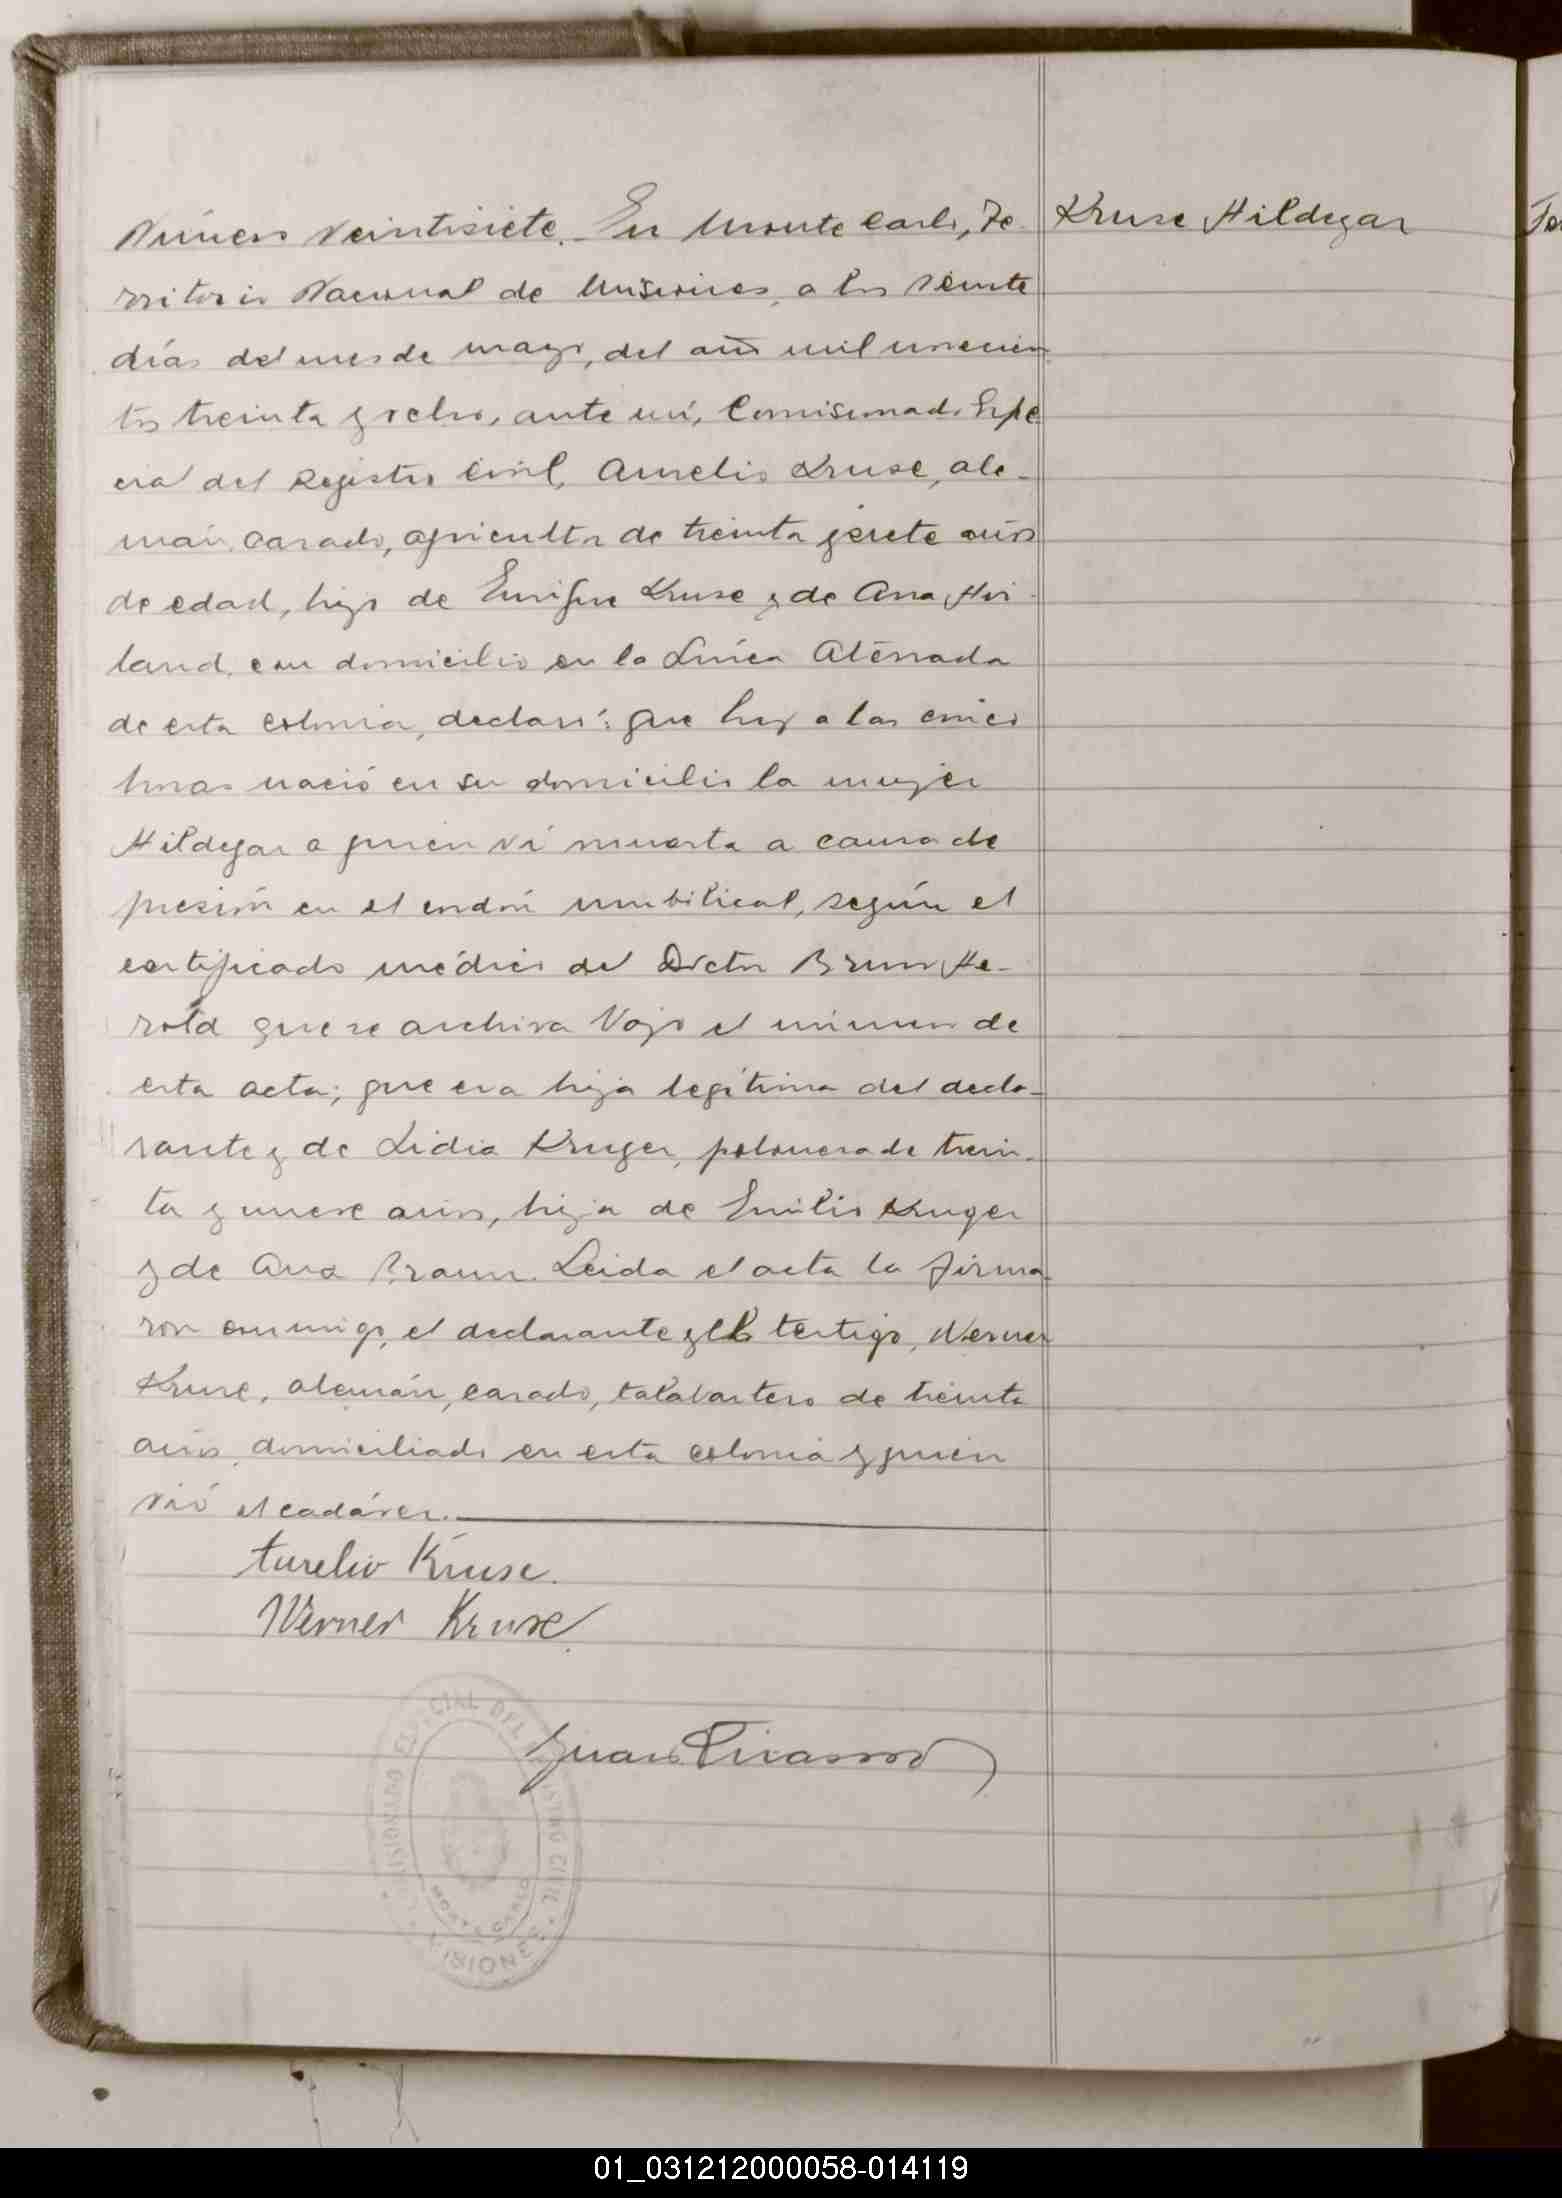 Número Veintisiete. En Monte Carlo, Te-
rritorio Nacional de Misiones, a los veinte
días del mes de mayo, del año mil novecien-
tos treinta y ocho, ante mí, Comisionado Espe
cial del Registro Civil, Aurelio Kruse, ale-
mán, casado, agricultor de treinta y siete años
de edad, hijo de Enrique Kruse y de Ana
land, con domicilio en la Línea
de esta colonia, declaró: que hoy a las cinco
horas nació en su domicilio la mujer
Hildegar a quien ví muerta a causa de
presión en el cordón umbilical, según el
certificado médico del Doctor Bruno He-
rold que se archiva bajo el número de
esta acta; que era hija legítima del decla-
rante y de Lidia Kruger, polonesa de trein-
ta y nueve años, hija de Emilio Kruger
y de Ana Braun. Leida el acta la firma-
ron conmigo, el declarante y el testigo, Werner
Kruse, alemán, casado, talabartero de treinta
años, domiciliado en esta colonia y quien
vió el cadáver.
Aurelio Kruse.
Werner Kruse
Juan Picasso
Kruse Hildegar
COMISIONADO ESPECIAL DEL REGISTRO CIVIL
MONTE CARLO
MISIONES
01_031212000058-014119